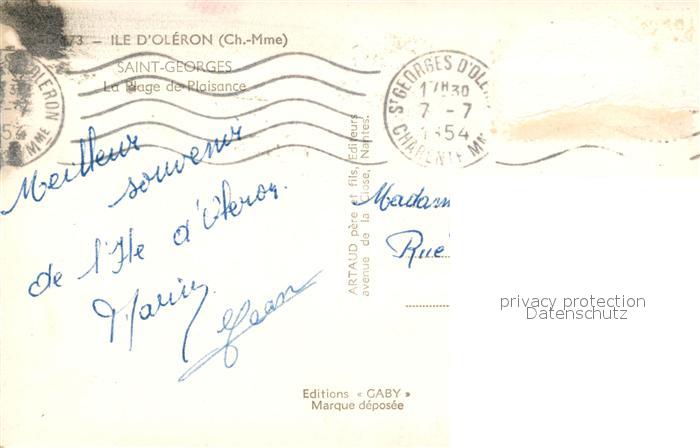 173 — ILE D'OLÉRON (Ch.-Mme)
SAINT-GEORGES
La Plage de Plaisance
OLERON
54
MME
ST GEORGES D'OLE
17H30
7 - 7
1954
CHARENTE MM
Meilleur
souvenir
de l'Ile d'Oleron.
Jean
ARTAUD père et fils, Editeurs
avenue de la Close, Nantes.
Madam
Rue
privacy protection
Datenschutz
Editions « GABY »
Marque déposée